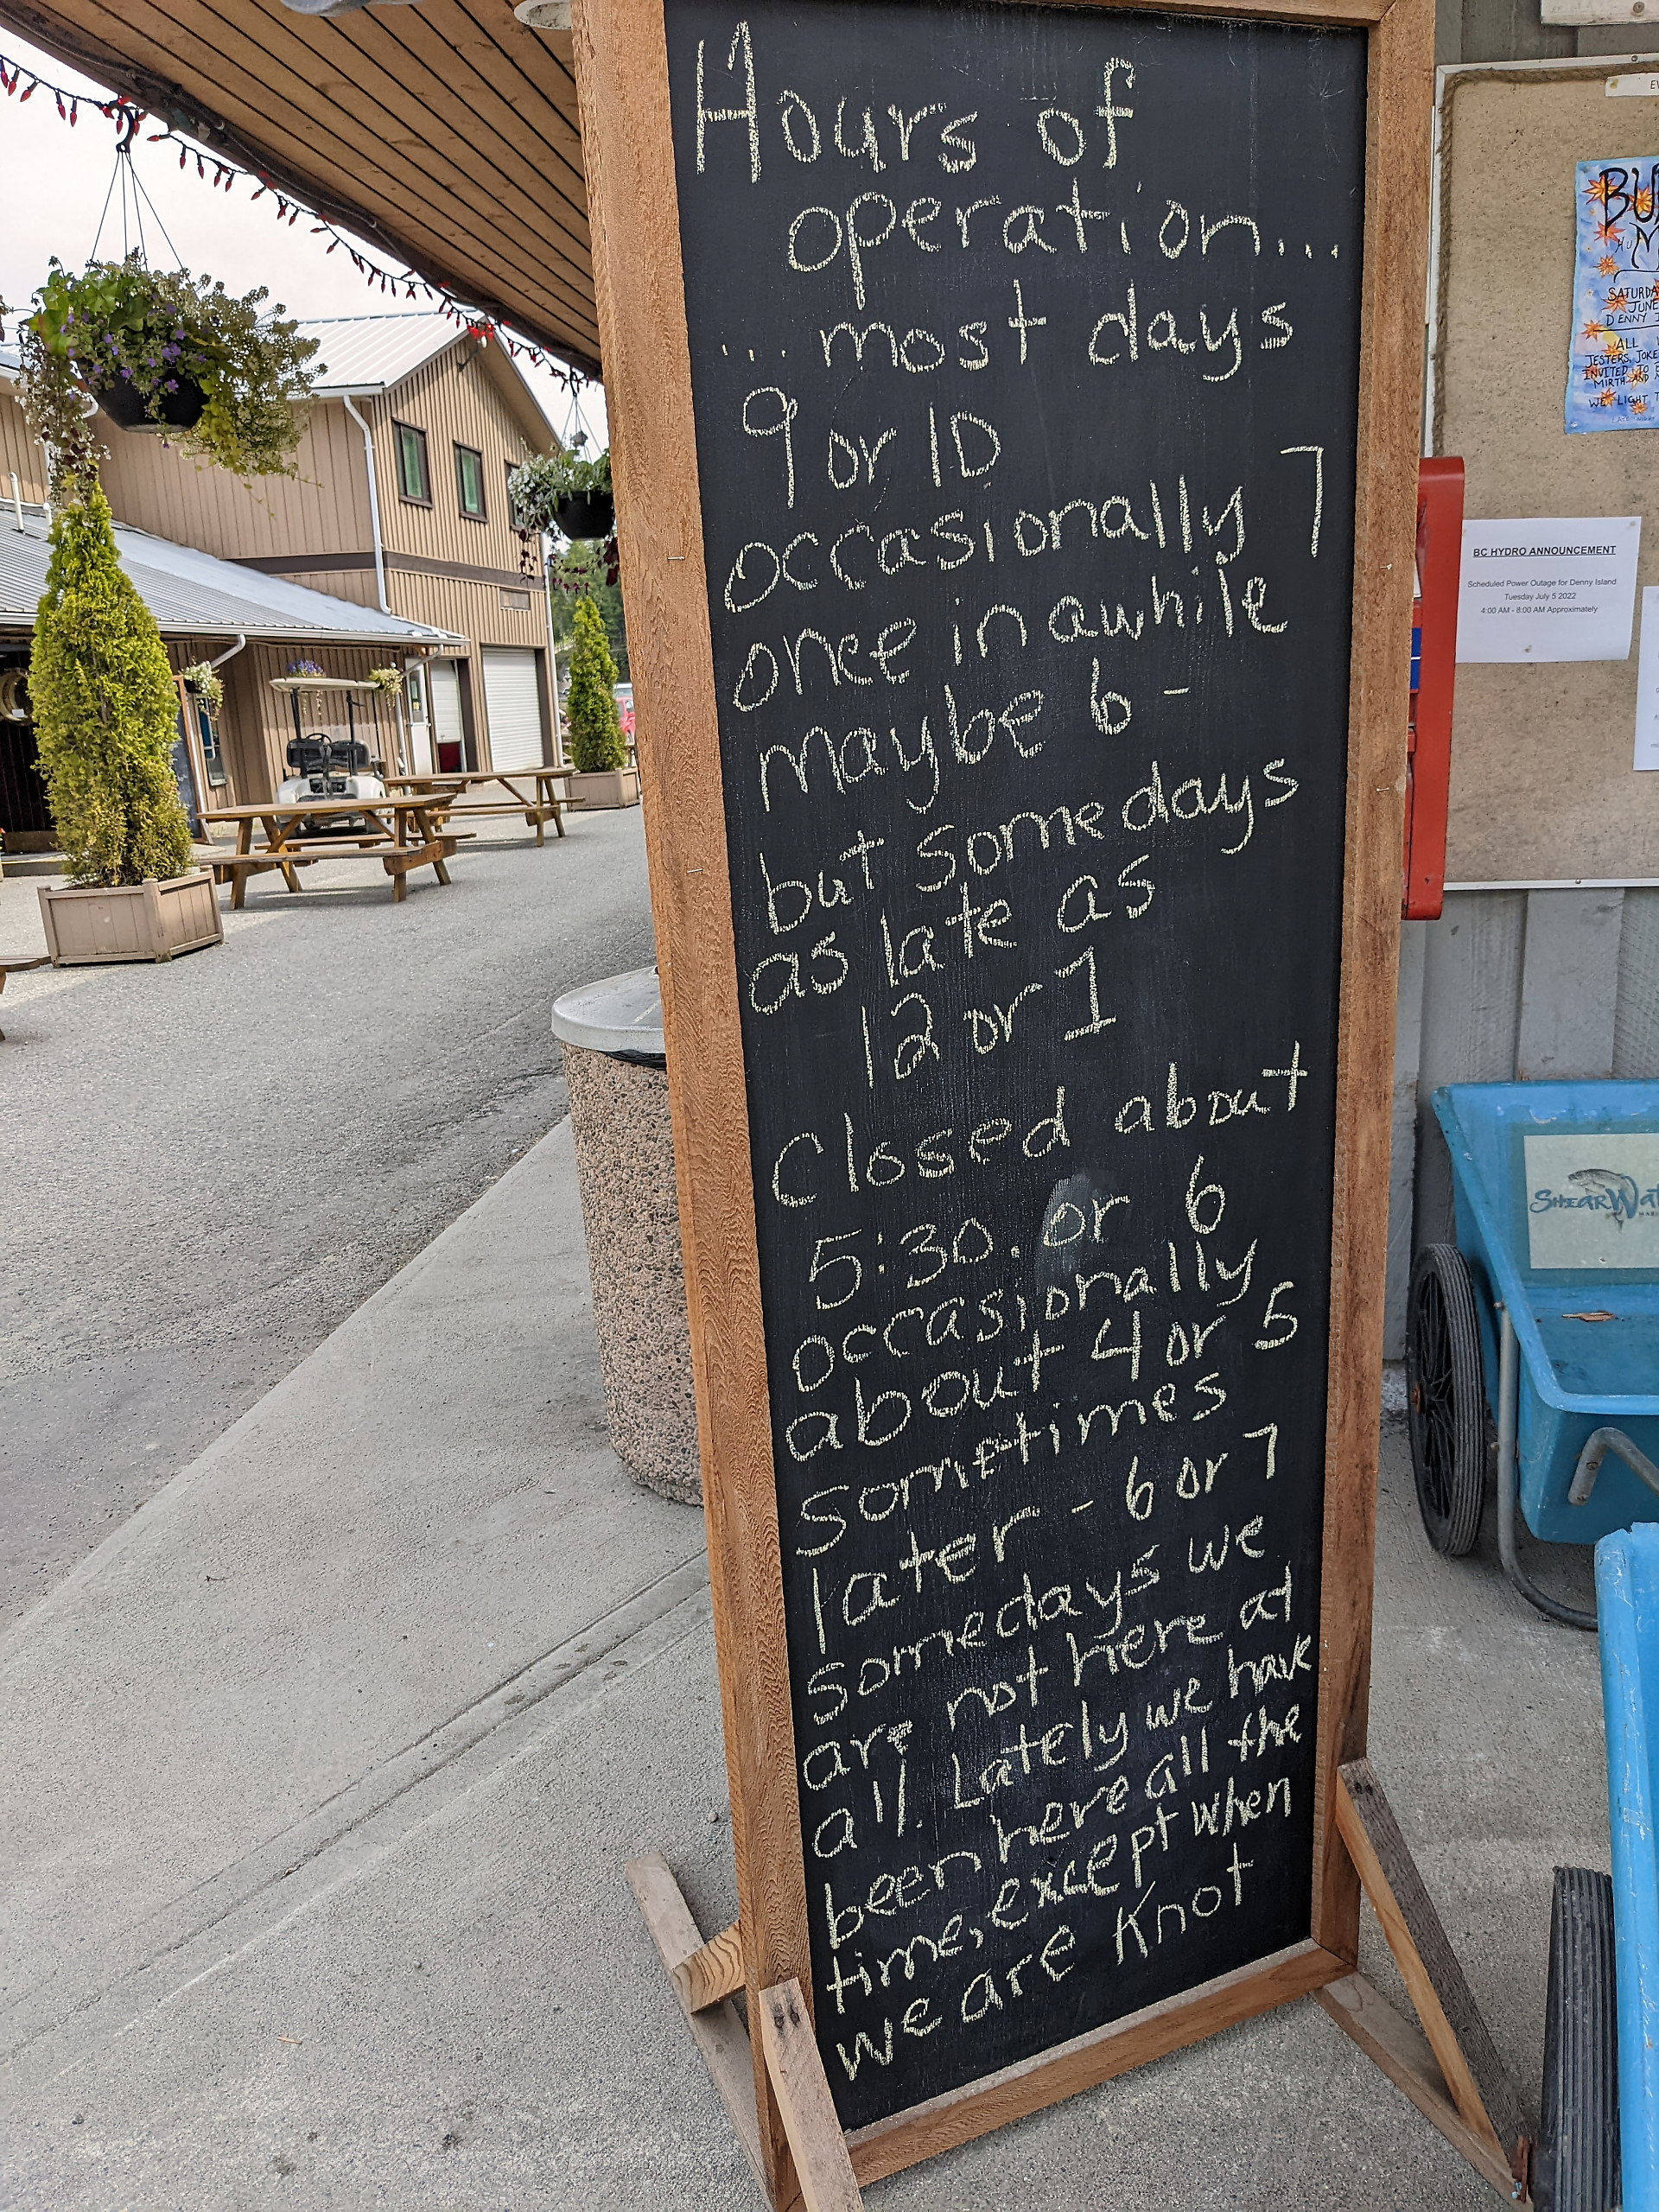 Hours of
operation...
...most days
9 or 10
occasionally 7
once in awhile
maybe 6 -
but somedays
as late as
12 or 1
Closed about
5:30. or 6
occasionally
about 4 or 5
sometimes
later - 6 or 7
somedays we
are not here at
all. Lately we have
been here all the
time, except when
we are Knot
BC HYDRO ANNOUNCEMENT
Scheduled Power Outage for Denny Island
Tuesday July 5 2022
4:00 AM - 8:00 AM Approximately
DENNY
ALL
JESTERS, JOKE
INVITED TO
MIRTH AND
WE LIGHT